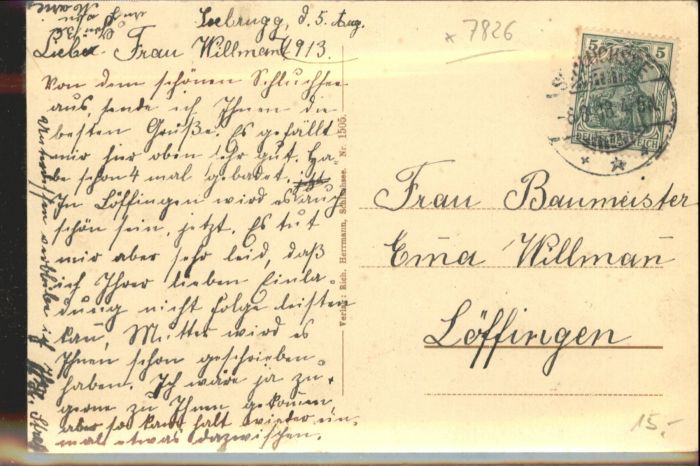 Seebrugg, d. 5. Aug.
Liebe Frau Willmann! 1913.
Von dem schönen Schluchsee
aus, sende ich Ihnen die
besten Grüße. Es gefällt
mir hier oben sehr gut. Ha-
be schon 4 mal gebadet.
In Löffingen wird es auch
schön sein, jetzt. Es tut
mir aber sehr leid, daß
ich Ihrer lieben Einla-
dung nicht folge leisten
kañ, Mutter wird es
Ihnen schon geschrieben
haben. Ich wäre ja zu
gerne zu Ihnen gekom̄en
aber so kam̄t halt wieder ein-
mal etwas dazwischen.
Verlag: Rich. Herrmann, Schluchsee. Nr. 1505.
7826
5 5
DEUTSCHES REICH
Frau Baumeister
Em̄a Willmañ
Löffingen
15.-